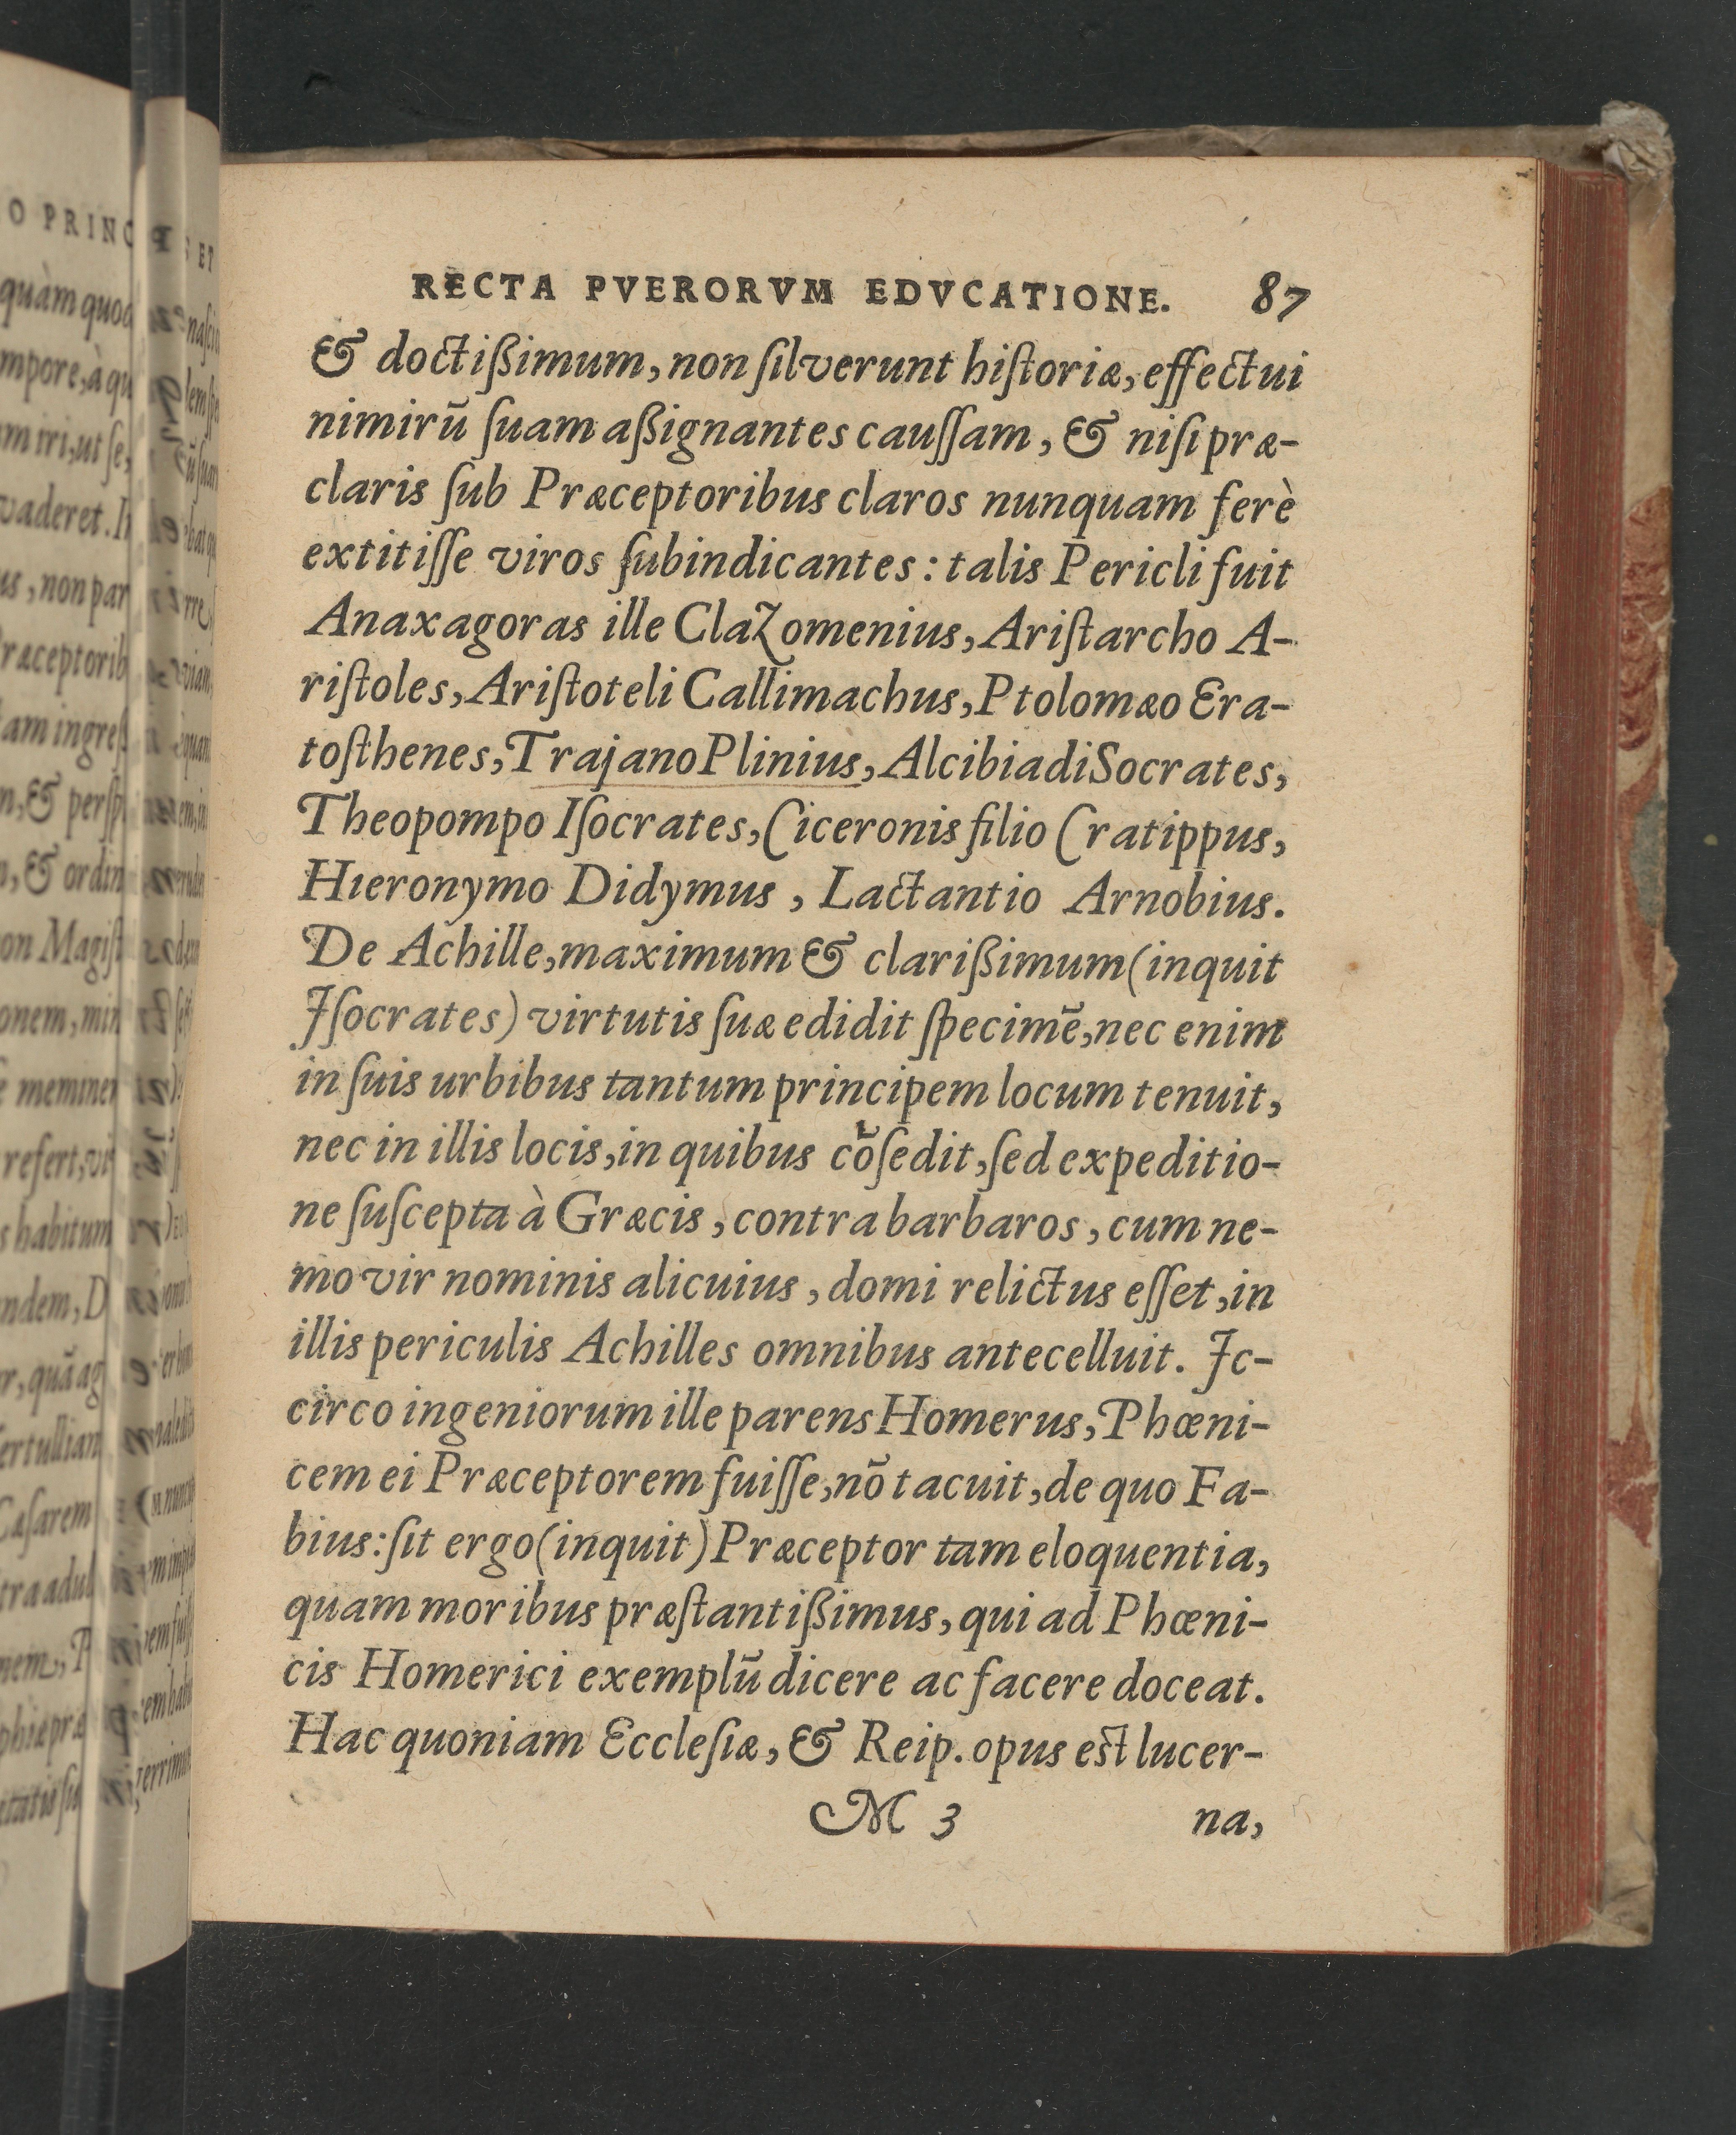 RECTA PVERORVM EDVCATIONE. 87
& doctißimum, non ſilverunt hiſtoriæ, effectui
nimirū ſuam aßignantes cauſſam, & niſi præ-
claris ſub Præceptoribus claros nunquam ferè
extitiſſe viros ſubindicantes: talis Pericli fuit
Anaxagoras ille Clazomenius, Ariſtarcho A-
riſtoles, Ariſtoteli Callimachus, Ptolomæo Era-
toſthenes, Trajano Plinius, Alcibiadi Socrates,
Theopompo Iſocrates, Ciceronis filio Cratippus,
Hieronymo Didymus, Lactantio Arnobius.
De Achille, maximum & clarißimum (inquit
Iſocrates) virtutis ſuæ edidit ſpecimē, nec enim
in ſuis urbibus tantum principem locum tenuit,
nec in illis locis, in quibus cōſedit, ſed expeditio-
ne ſuſcepta à Græcis, contra barbaros, cum ne-
mo vir nominis alicuius, domi relictus eſſet, in
illis periculis Achilles omnibus antecelluit. Ic-
circo ingeniorum ille parens Homerus, Phœni-
cem ei Præceptorem fuiſſe, nō tacuit, de quo Fa-
bius: ſit ergo (inquit) Præceptor tam eloquentia,
quam moribus præſtantißimus, qui ad Phœni-
cis Homerici exemplū dicere ac facere doceat.
Hac quoniam Eccleſiæ, & Reip. opus eſt lucer-
M 3 na,